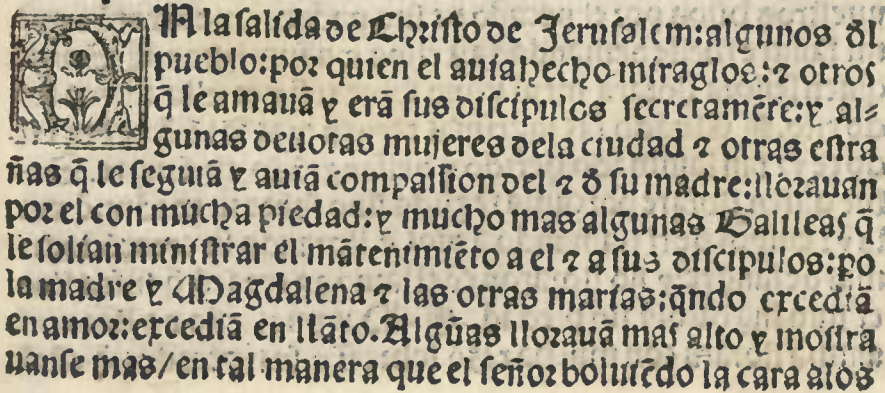 A la salida de Christo de Jerusalem:algunos đl
pueblo:por quien el auia hecho miraglos:⁊ otros
q̃ le amauã y erã sus discipulos secretamẽte:y al⸗
gunas deuotas mujeres dela ciudad ⁊ otras estra
ñas q̃ le seguiã y auiã compassion del ⁊ đ su madre:llorauan
por el con mucha piedad:y mucho mas algunas Galileas q̃
le solian ministrar el mãtenimiẽto a el ⁊ a sus discipulos:po
la madre y Magdalena ⁊ las otras marias:q̃ndo excediã
en amor:excediã en llãto.Algũas llorauã mas alto y mostra
uanse mas/en tal manera que el señor boluiẽdo la cara alos